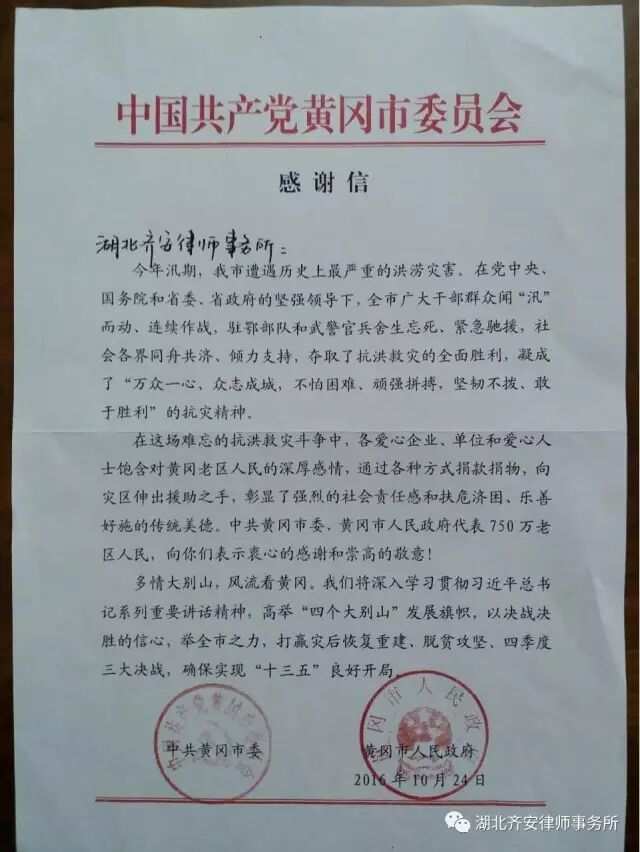 中国共产党黄冈市委员会
感谢信
湖北齐安律师事务所：
今年汛期，我市遭遇历史上最严重的洪涝灾害。在党中央、
国务院和省委、省政府的坚强领导下，全市广大干部群众闻“汛”
而动、连续作战，驻鄂部队和武警官兵舍生忘死、紧急驰援，社
会各界同舟共济、倾力支持，夺取了抗洪救灾的全面胜利，凝成
了“万众一心、众志成城，不怕困难、顽强拼搏，坚韧不拨、敢
于胜利”的抗灾精神。
在这场难忘的抗洪救灾斗争中，各爱心企业、单位和爱心人
士饱含对黄冈老区人民的深厚感情，通过各种方式捐款捐物，向
灾区伸出援助之手，彰显了强烈的社会责任感和扶危济困、乐善
好施的传统美德。中共黄冈市委、黄冈市人民政府代表 750 万老
区人民，向你们表示衷心的感谢和崇高的敬意！
多情大别山，风流看黄冈。我们将深入学习贯彻习近平总书
记系列重要讲话精神，高举“四个大别山”发展旗帜，以决战决
胜的信心，举全市之力，打赢灾后恢复重建、脱贫攻坚、四季度
三大决战，确保实现“十三五”良好开局。
中国共产党黄冈市委员会
中共黄冈市委
黄冈市人民政府
黄冈市人民政府
2016 年 10 月 24 日
湖北齐安律师事务所